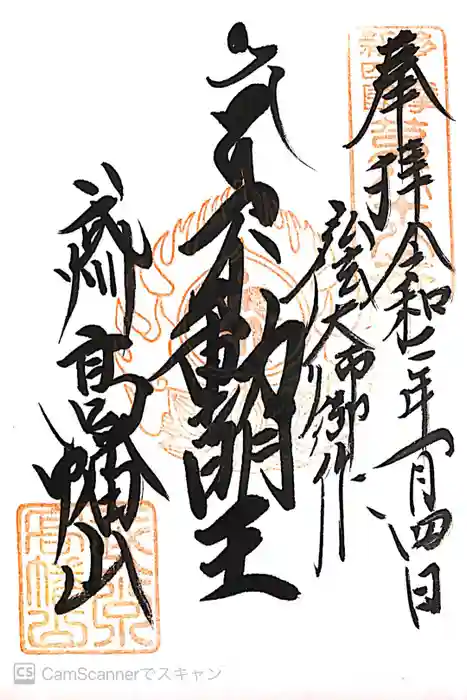 奉拝
令和二年一月四日
弘法大師御作
不動明王
武州
高幡山
CamScannerでスキャン